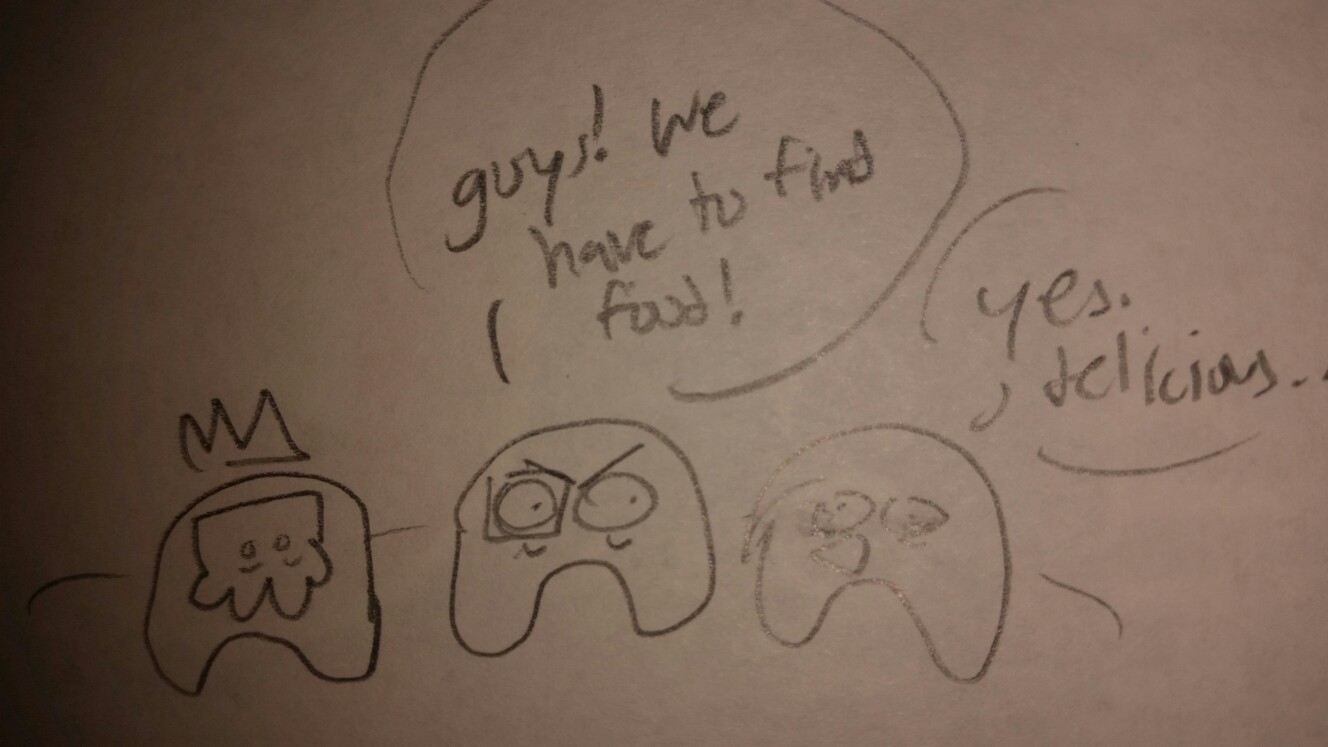 guys! We
have to find
food!
yes.
delicious..